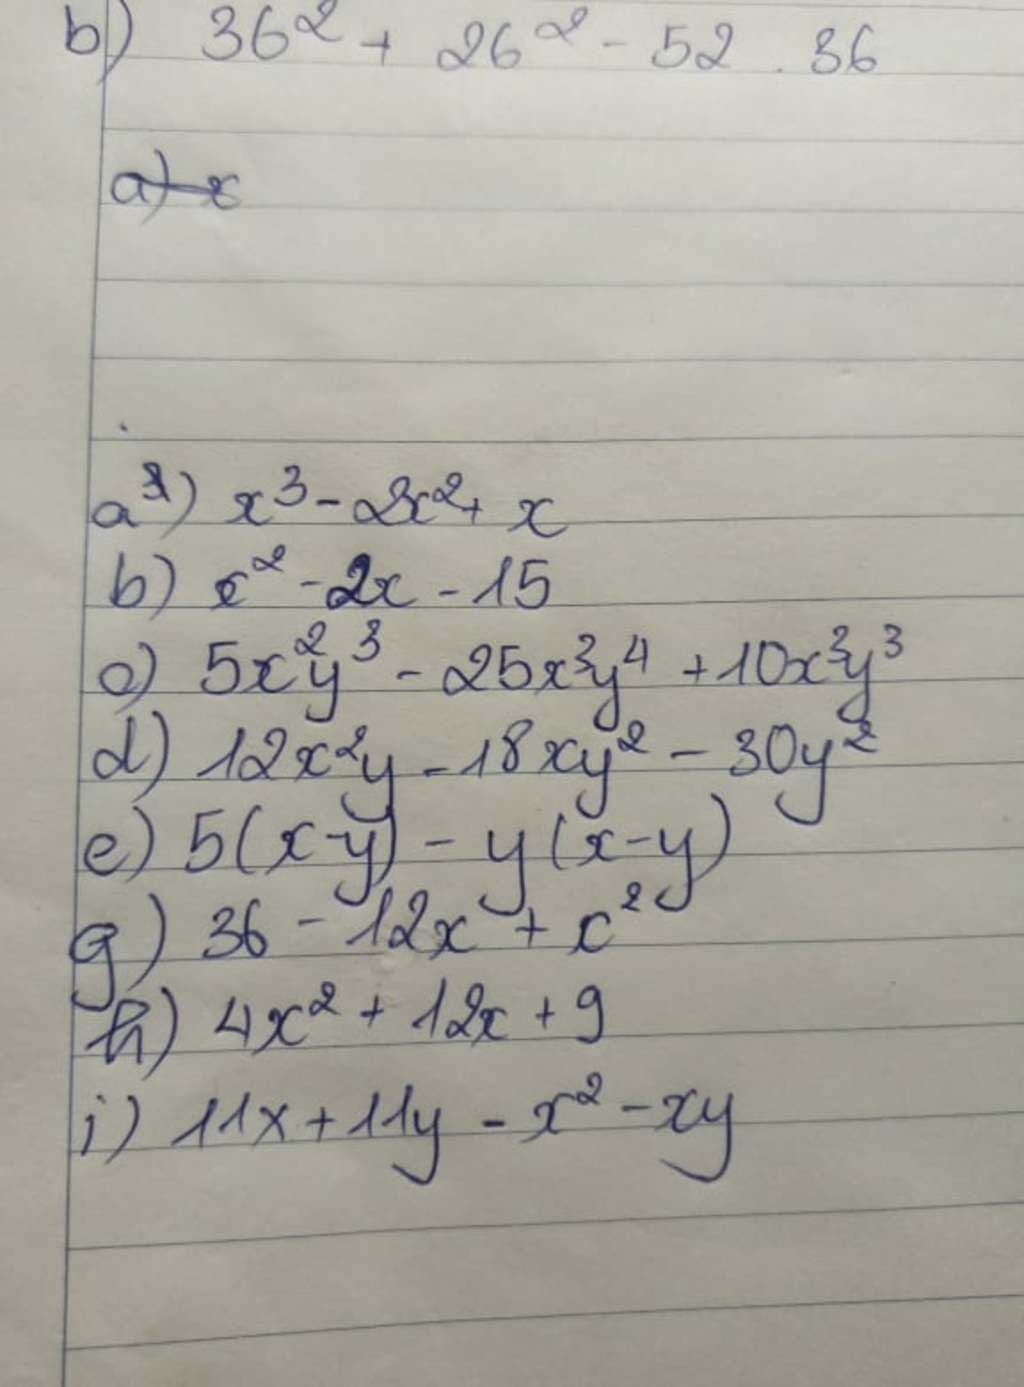 b) 36² + 26² - 52 . 36
a) x
a) x³ - 2x² + x
b) x² - 2x - 15
c) 5x²y³ - 25x²y⁴ + 10x³y³
d) 12x²y - 18xy² - 30y²
e) 5(x-y) - y(x-y)
g) 36 - 12x + x²
h) 4x² + 12x + 9
i) 11x + 11y - x² - xy